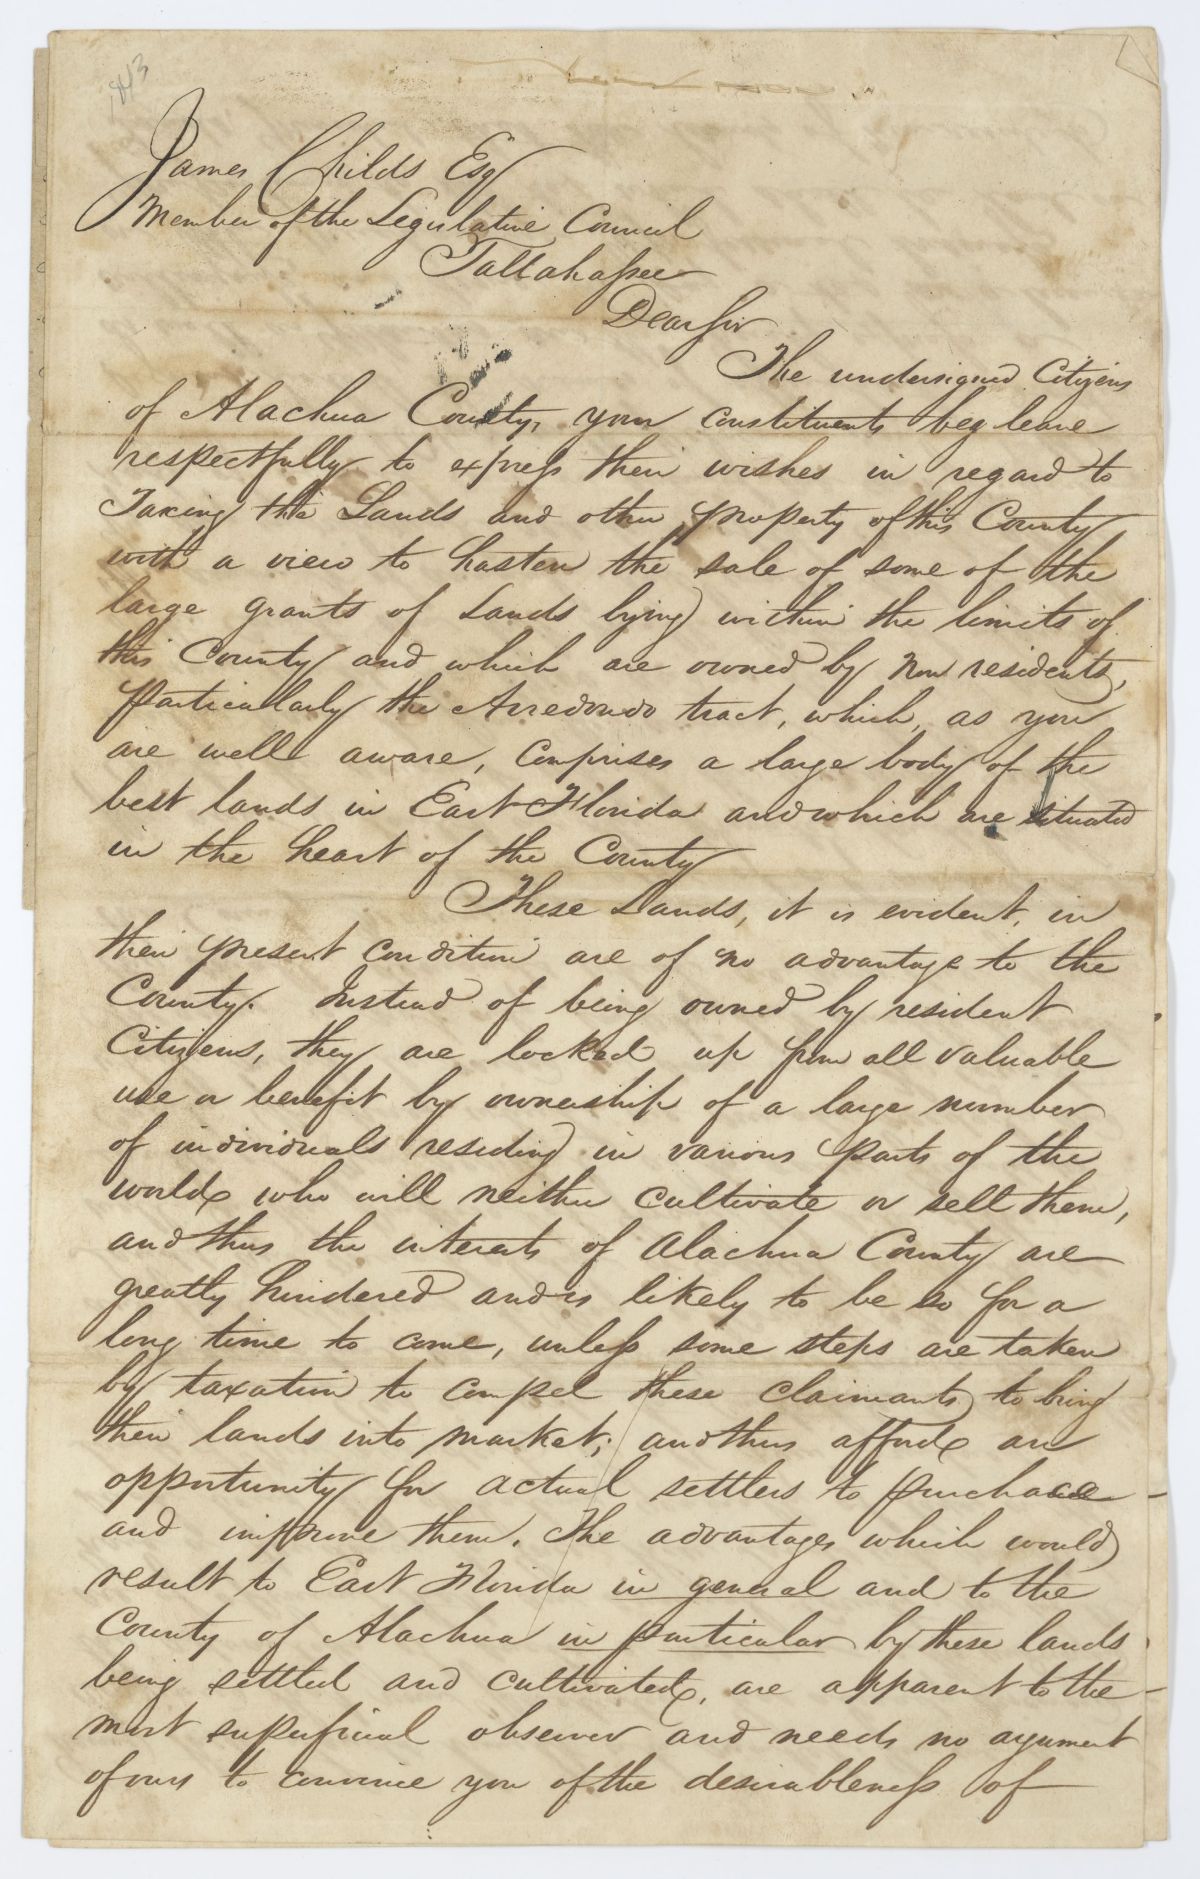 1843
James Childs Esq
Member of the Legislative Council
Tallahassee
Dear Sir
The undersigned Citizens
of Alachua County, your constituents beg leave
respectfully to express their wishes in regard to
Taxing the Lands and other property of this County
with a view to hasten the sale of some of the
large grants of Lands lying within the limits of
this County and which are owned by non residents,
particularly the Arredondo tract, which, as you
are well aware, comprises a large body of the
best lands in East Florida and which are situated
in the heart of the County
These Lands, it is evident, in
their present condition are of no advantage to the
County. Instead of being owned by resident
Citizens, they are locked up from all valuable
use or benefit by ownership of a large number
of individuals residing in various parts of the
world who will neither cultivate or sell them,
and thus the interests of Alachua County are
greatly hindered and is likely to be so for a
long time to come, unless some steps are taken
by taxation to compel these claimants to bring
their lands into market; and thus afford an
opportunity for actual settlers to purchase
and improve them. The advantages which would
result to East Florida in general and to the
County of Alachua in particular by these lands
being settled and cultivated, are apparent to the
most superficial observer and needs no argument
of ours to convince you of the desirableness of